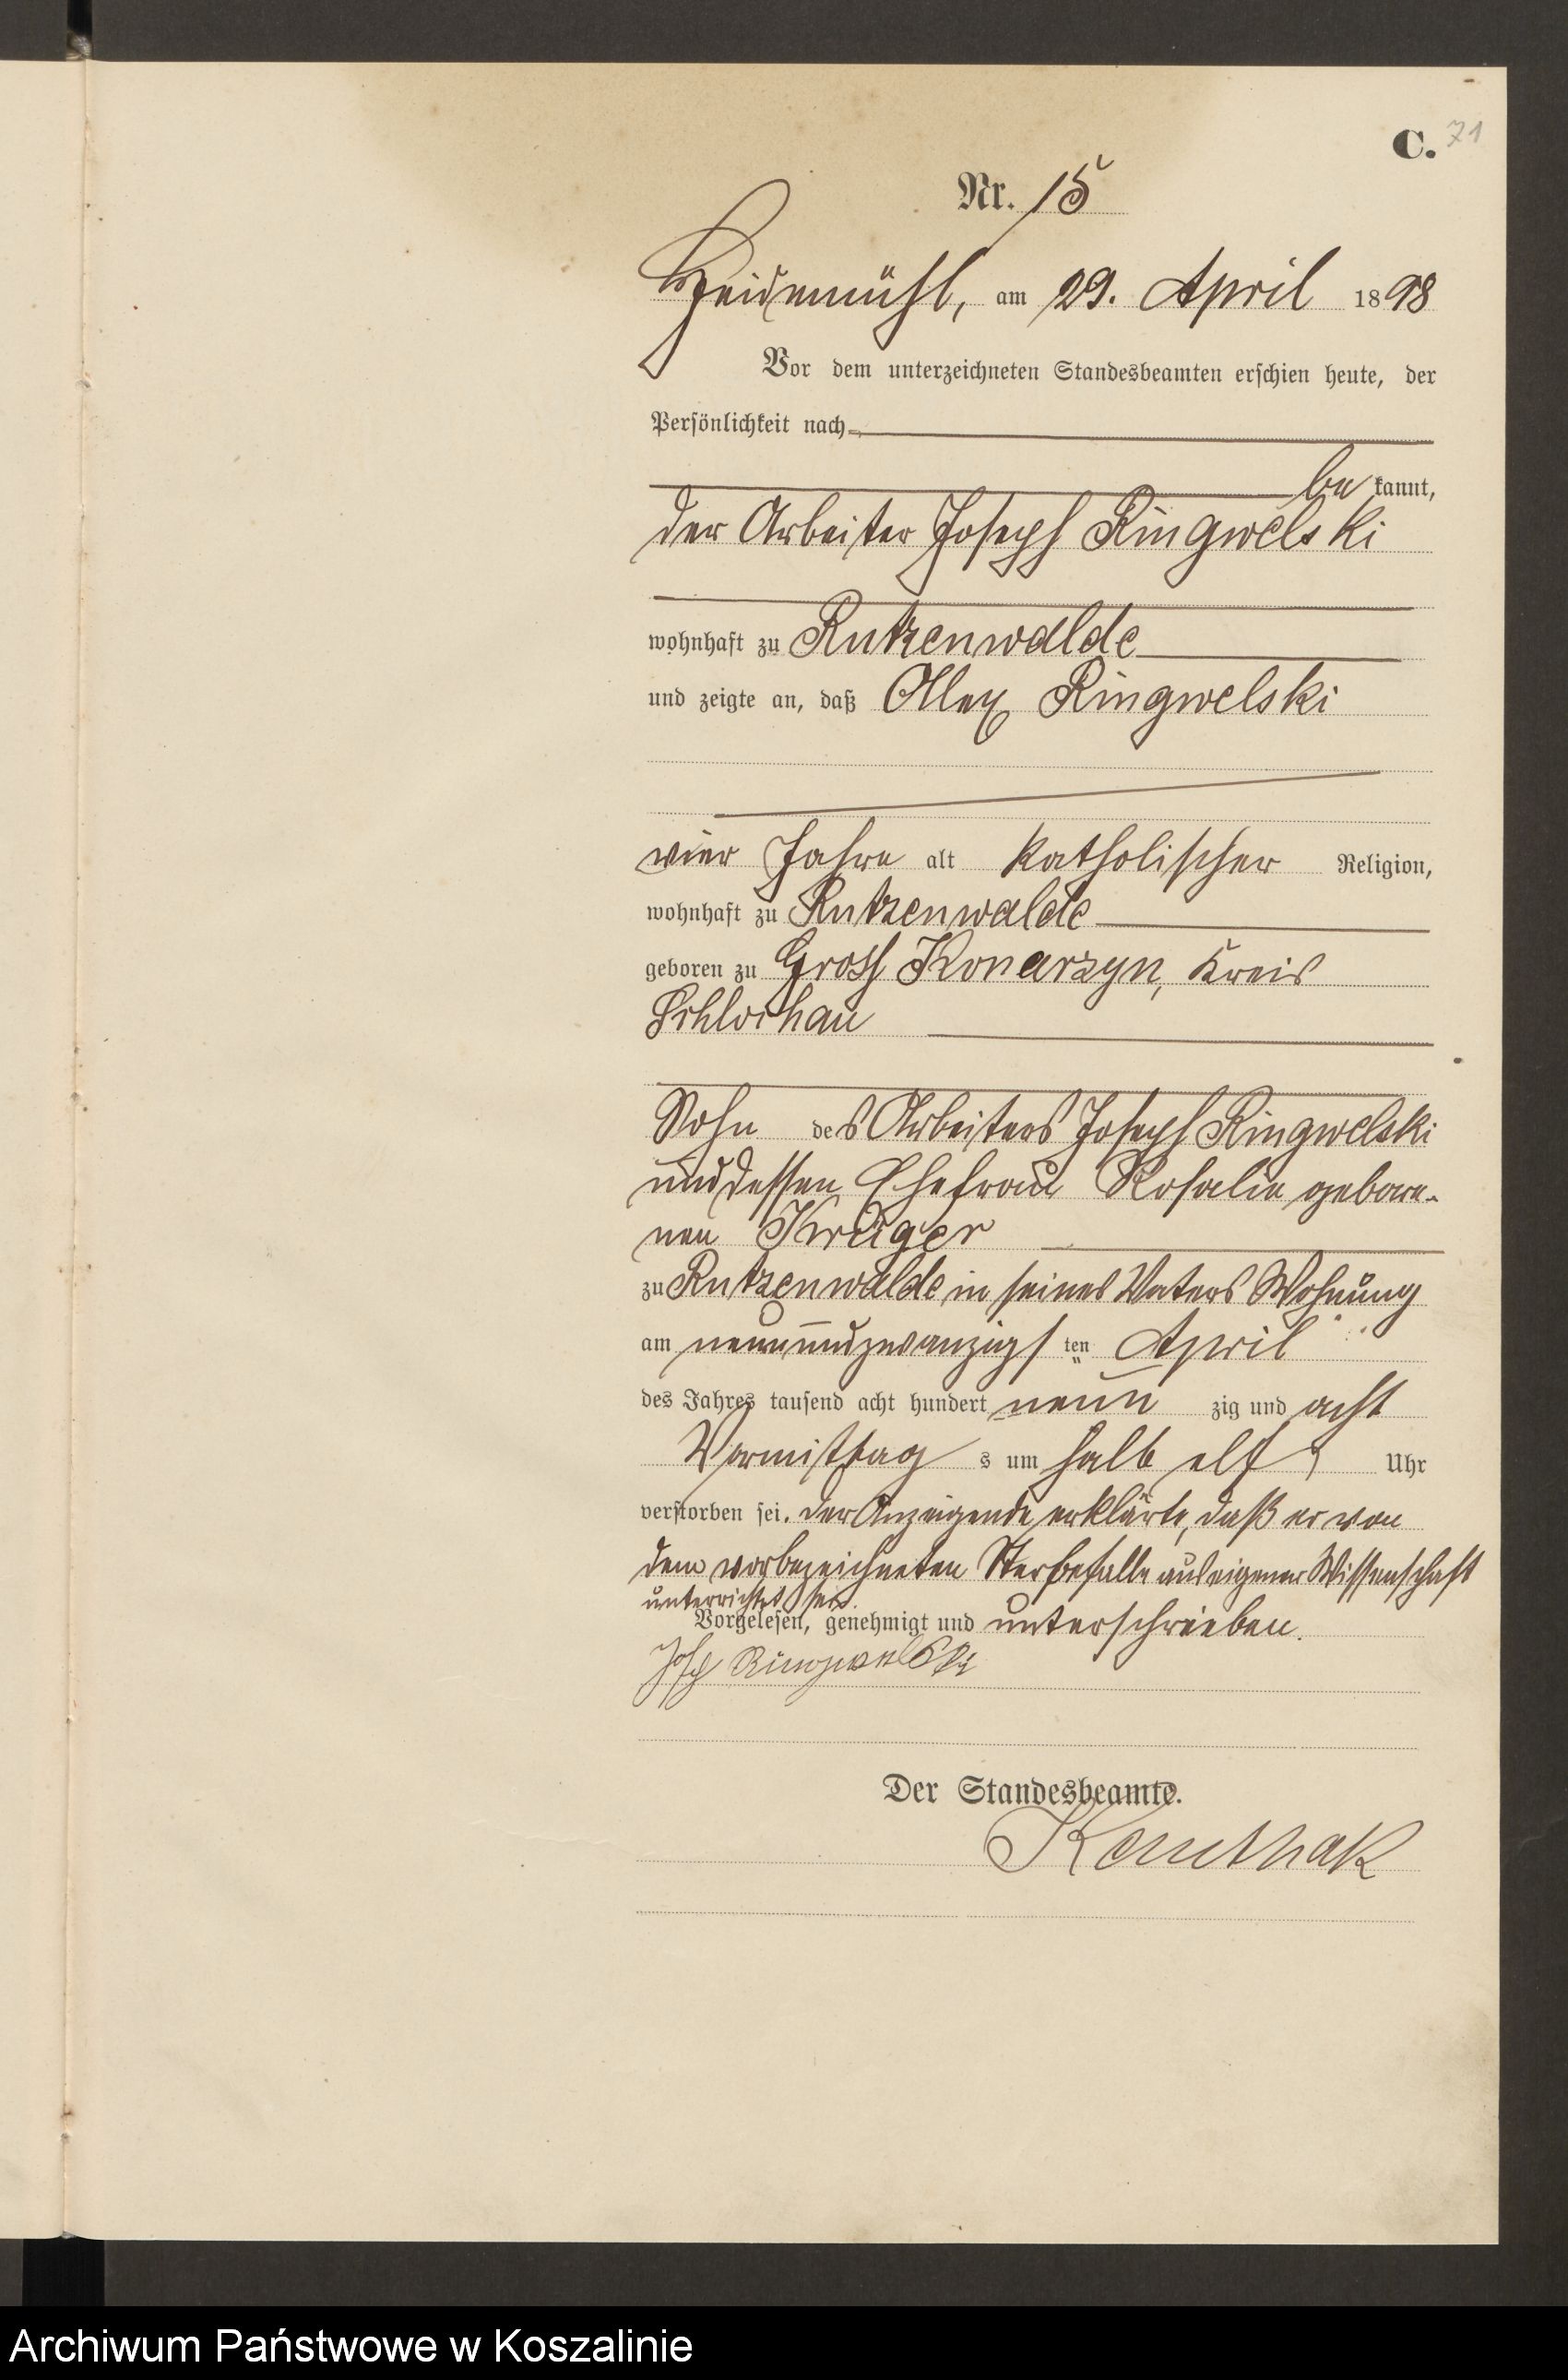 C. 71
Nr. 15
Heidemühl, am 29. April 1898
Vor dem unterzeichneten Standesbeamten erschien heute, der
Persönlichkeit nach
be kannt,
der Arbeiter Joseph Ringwelski
wohnhaft zu Rutzenwalde
und zeigte an, daß Allex Ringwelski
vier Jahre alt katholischer Religion,
wohnhaft zu Rutzenwalde
geboren zu Gross Konarzyn, Kreis
Schlochau
Sohn des Arbeiters Joseph Ringwelski
und dessen Ehefrau Rosalie gebore-
nen Krüger
zu Rutzenwalde in seines Vaters Wohnung
am neunundzwanzigs ten April
des Jahres tausend acht hundert neun zig und acht
Vormittag s um halb elf Uhr
verstorben sei. Der Anzeigende erklärte, daß er von
dem vorbezeichneten Sterbefalle aus eigener Wissenschaft
unterrichtet sei.
Vorgelesen, genehmigt und unterschrieben.
Josef Ringwelski
Der Standesbeamte.
Archiwum Państwowe w Koszalinie